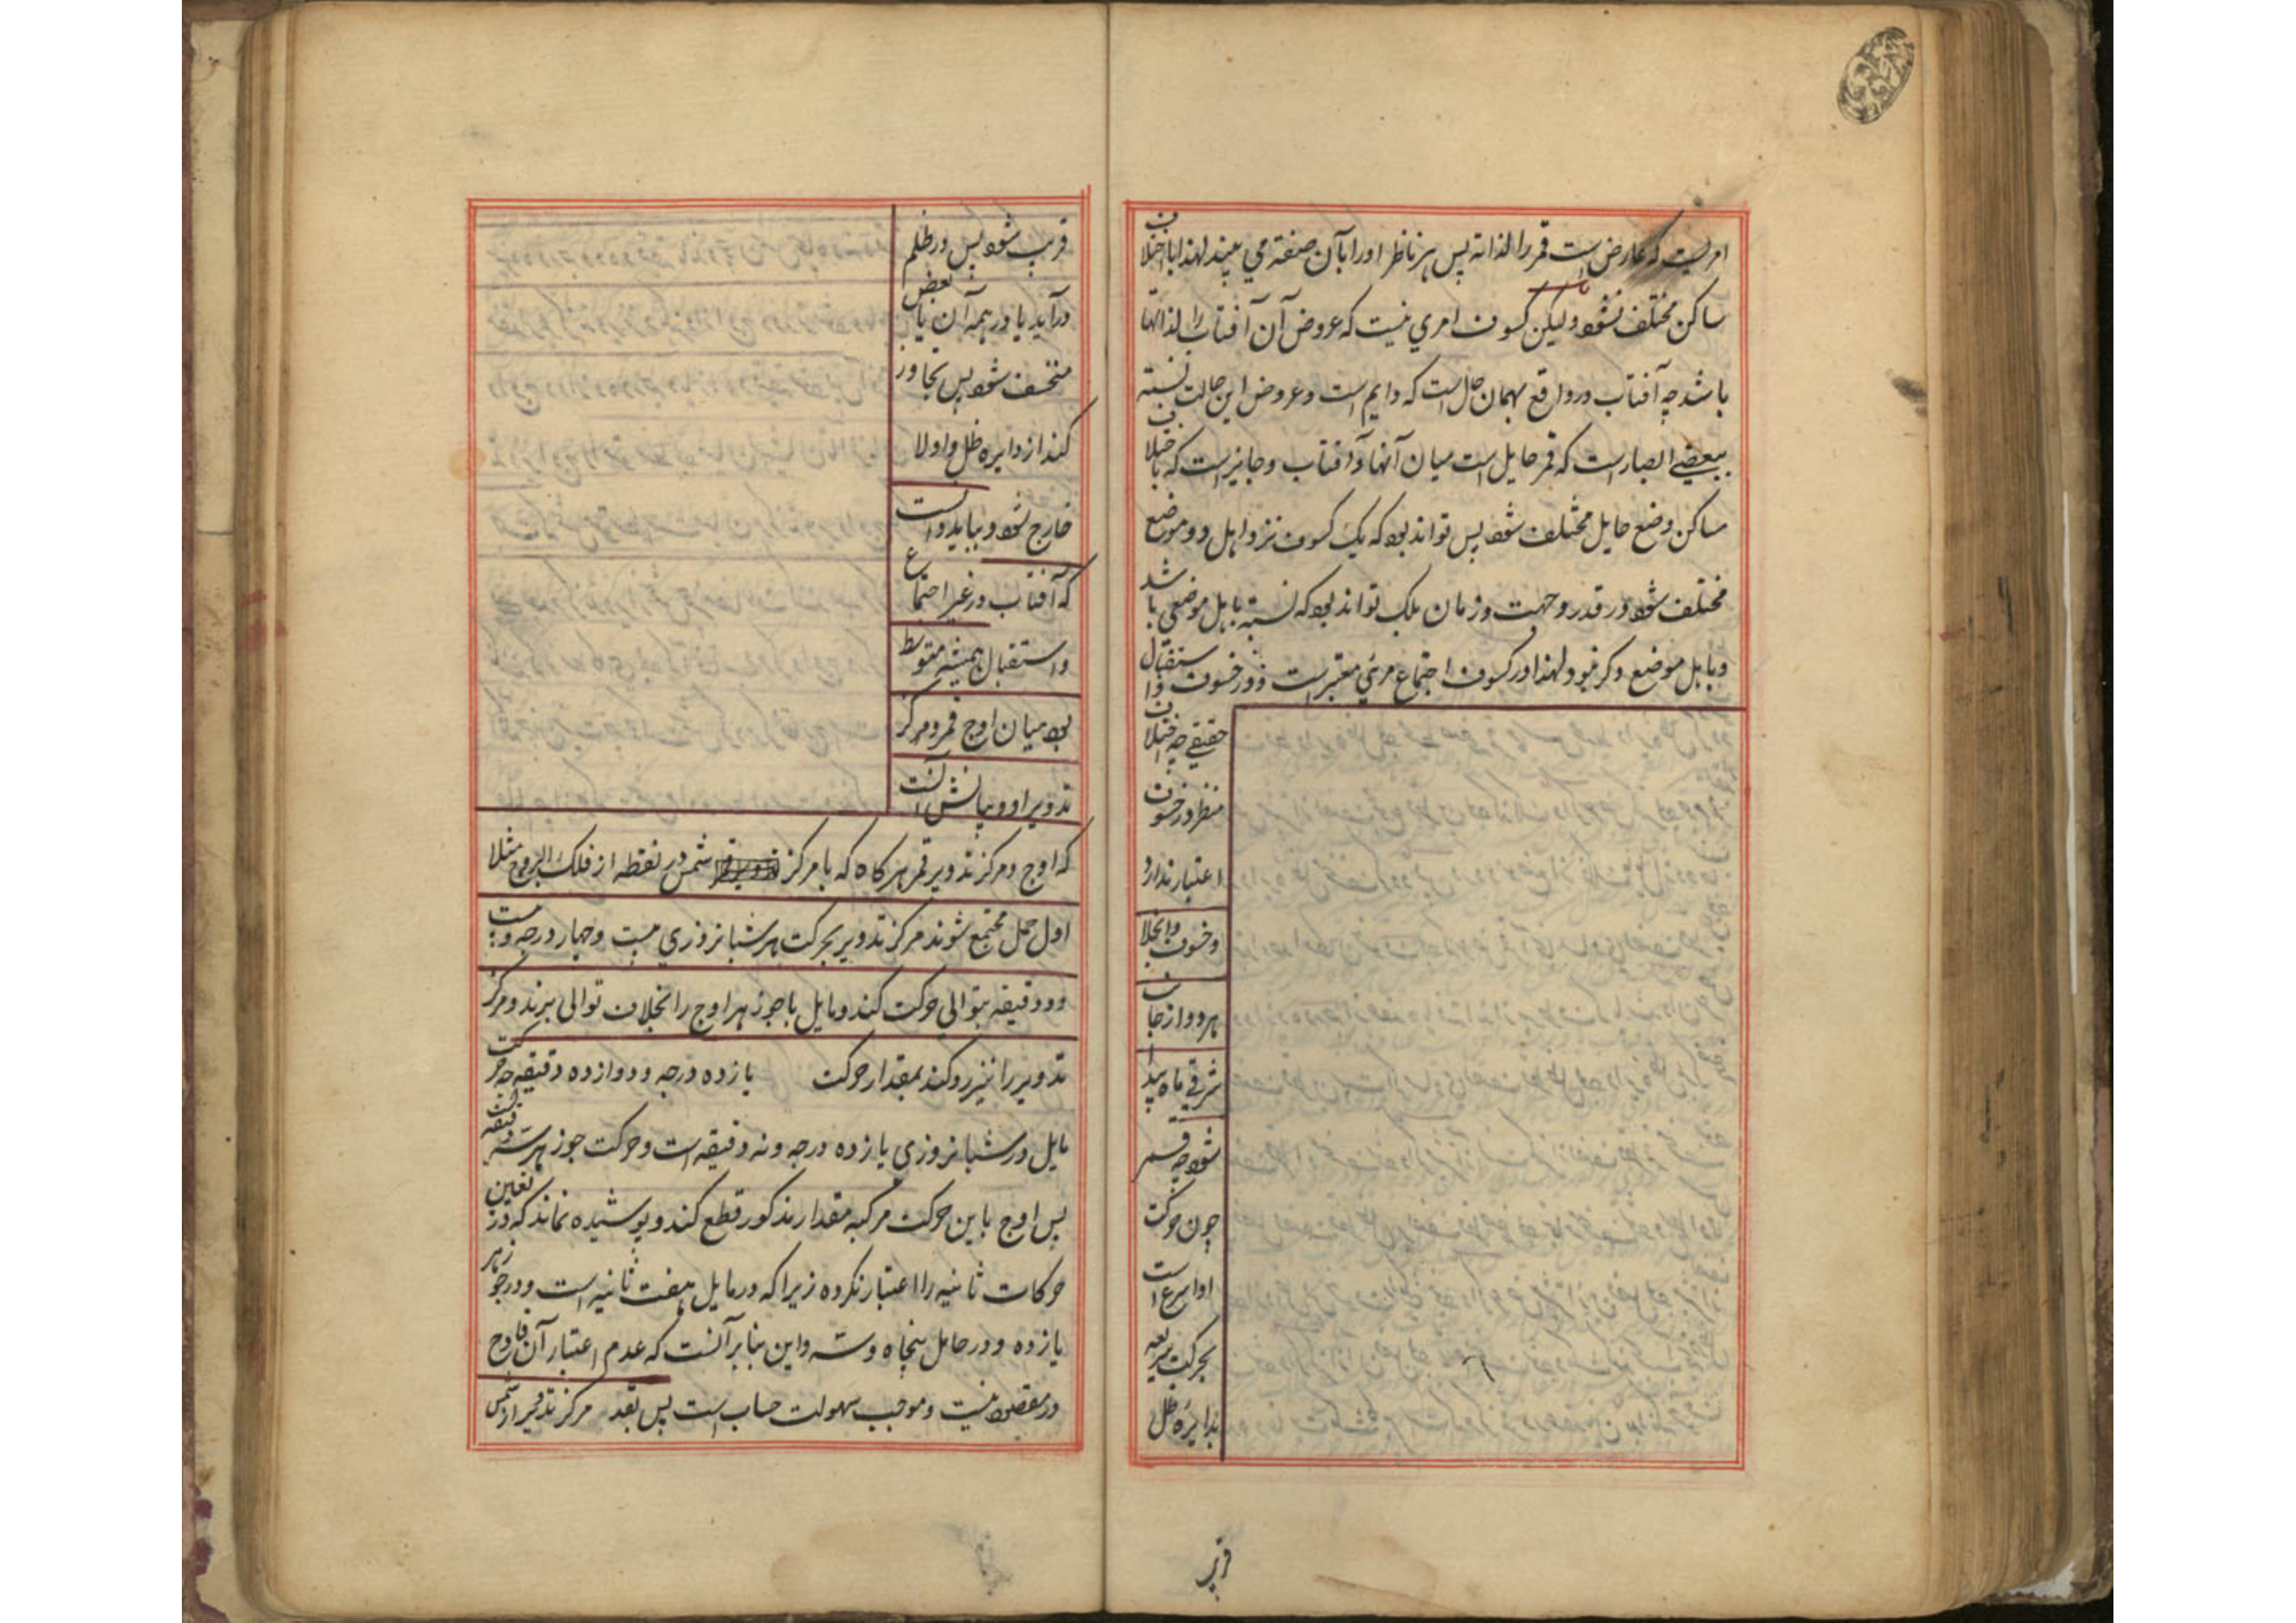 امریست که عارض است قمر را لذاته پس هر ناظر او را بآن صفته می بیند لهذا باختلاف
مساکن مختلف نشود ولیکن کسوف امری نیست که عروض آن آفتاب را لذاتها
باشد چه آفتاب در واقع بهمان حال است که دایم است و عروض این حالت نسبته
ببعضی ابصار است که قمر حایل است میان آنها و آفتاب و جایز است که باختلاف
مساکن وضع حایل مختلف شود پس تواند بود که یک کسوف نزد اهل دو موضع
مختلف شود در قدر و جهت و زمان بلک تواند بود که نسبته باهل موضعی باشد
و باهل موضع دکر نبود ولهذا در کسوف اجتماع مرئی معتبر است و در خسوف استقبال
حقیقی چه اختلاف
منظر در خسوف
اعتبار ندارد
و خسوف و انجلا
هر دو از جانب
شرقی ماه پیدا
شود چه قمر
چون حرکت
او اسرع است
بحرکت سریعه
بدایره ظل
قریب
قریب شود پس در ظلم
درآید یا در همه آن یا بعض
منخسف شود پس تجاوز
کند از دایره ظل و اولا
خارج شود و بباید دانست
که آفتاب در غیر اجتماع
و استقبال همیشه متوسط
بود میان اوج قمر و مرکز
تدویر او و بیانش آنست
که اوج و مرکز تدویر قمر هرکاه که با مرکز شمس در نقطه از فلک البروج مثلا
اول حمل مجتمع شوند مرکز تدویر بحرکت هر شبانروزی بیست و چهار درجه و بیست
و دو دقیقه بتوالی حرکت کند و مایل با جوزهر اوج را بخلاف توالی برند و مرکز
تدویر را نیز رد کند بمقدار حرکت یازده درجه و دوازده دقیقه چه حرکت
مایل در شبانروزی یازده درجه و نه دقیقه است و حرکت جوزهر سه دقیقه است
پس اوج باین حرکت مرکبه مقدار مذکور قطع کند و پوشیده نماند که در تعیین
حرکات ثانیه را اعتبار نکرده زیرا که در مایل هفت ثانیه است و در جوزهر
یازده و در حامل پنجاه و سه و این بنا بر آنست که عدم اعتبار آن قادح
در مقصود نیست و موجب سهولت حساب است پس بعد مرکز تدویر از شمس